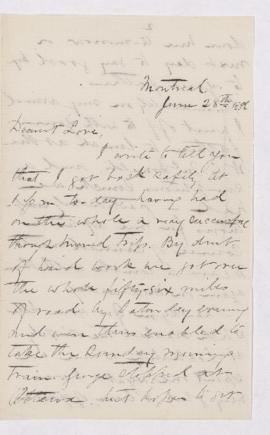 Montreal
June 28th
Dearest Love,
I write to tell you
that I got back safely at
1 pm to-day having had
on the whole a very successful
though hurried trip. By dint
of hard work we got over
the whole fifty-six miles
of road by Saturday evening
and were thus enabled to
take the Sunday morning
train
stopped at
Ottawa